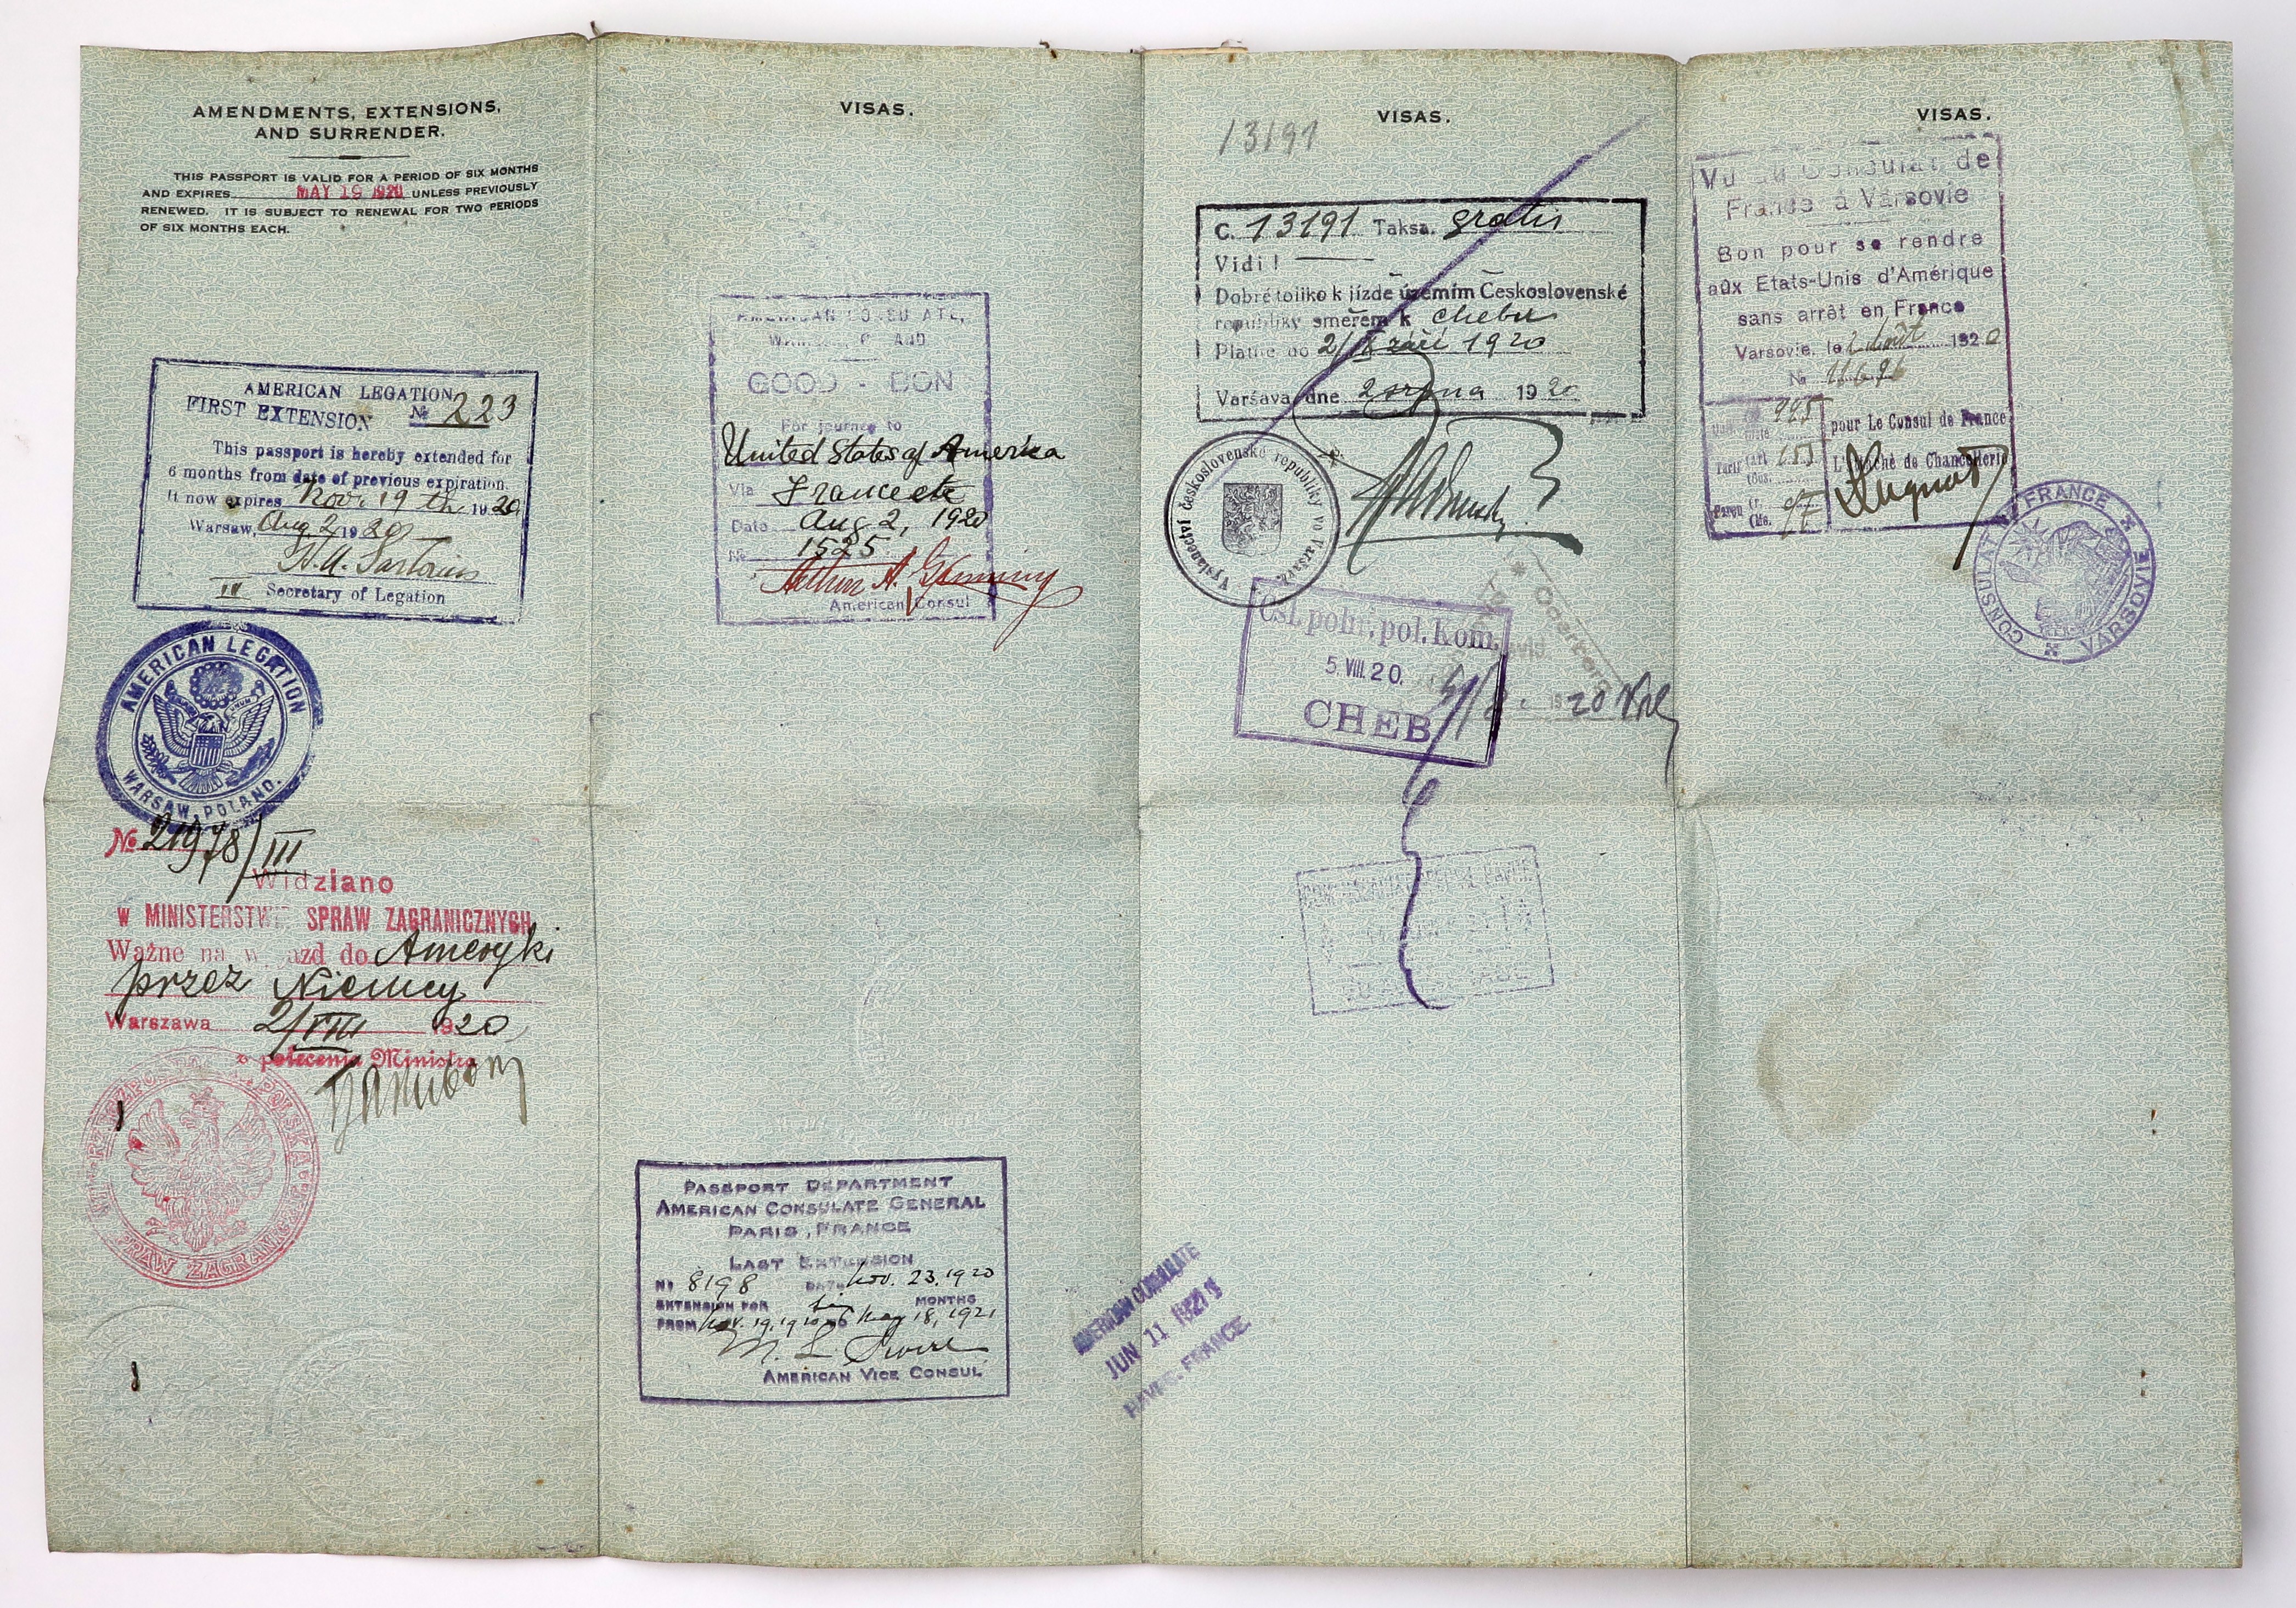 AMENDMENTS, EXTENSIONS,
AND SURRENDER.
THIS PASSPORT IS VALID FOR A PERIOD OF SIX MONTHS
AND EXPIRES MAY 19 1920 UNLESS PREVIOUSLY
RENEWED. IT IS SUBJECT TO RENEWAL FOR TWO PERIODS
OF SIX MONTHS EACH.
AMERICAN LEGATION
FIRST EXTENSION № 223
This passport is hereby extended for
6 months from date of previous expiration.
It now expires Nov. 19 th 1920
Warsaw, Aug 2 1920
III Secretary of Legation
AMERICAN LEGATION
WARSAW, POLAND.
№ 21978/III
Widziano
W MINISTERSTWIE SPRAW ZAGRANICZNYCH
Ważne na wyjazd do Ameryki
przez Niemcy
Warszawa 2/VIII 1920
z polecenia Ministra
VISAS.
AMERICAN CONSULATE,
WARSAW, POLAND
GOOD - BON
For journey to
United States of America
Via France etc
Date Aug 2, 1920
№ 1525
American Consul
PASSPORT DEPARTMENT
AMERICAN CONSULATE GENERAL
PARIS, FRANCE
LAST EXTENSION
No 8198 DATE Nov. 23. 1920
EXTENSION FOR six MONTHS
FROM Nov. 19, 1920 to May 18, 1921
AMERICAN VICE CONSUL
AMERICAN CONSULATE
JUN 11 1921
HAVRE, FRANCE
VISAS.
13191
C. 13191 Taksa. gratis
Vidi!
Dobré toliko k jízdě územím Československé
republiky směrem k Chebu
Platné do 2/IX září 1920
Varšava dne 2 srpna 1920
Vyslanectví československé republiky ve Varšavě
Čsl. pohr. pol. kom.
5. VIII. 20.
CHEB
Oderberg
20
VISAS.
Vu au Consulat de
France à Varsovie
Bon pour se rendre
aux Etats-Unis d'Amérique
sans arrêt en France
Varsovie, le 2 août 1920
№
pour Le Consul de France
L'Attaché de Chancellerie
CONSULAT FRANCE
VARSOVIE